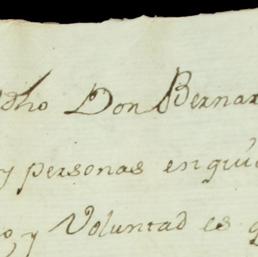 dho Don Bernar
y personas en quie
y Voluntad es q